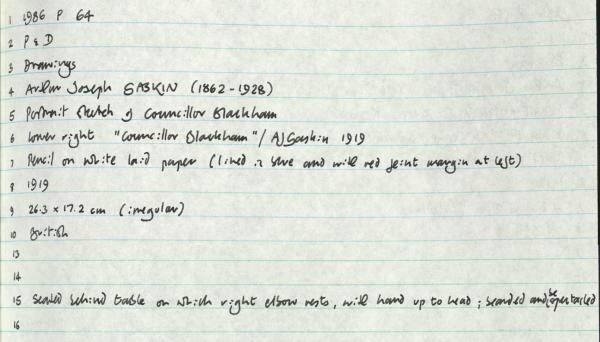 1 1986 P 64
2 P & D
3 Drawings
4 Arthur Joseph GASKIN (1862-1928)
5 Portrait sketch of Councillor Blackham
6 lower right "Councillor Blackham" / AJGaskin 1919
7 Pencil on white laid paper (lined in blue and with red feint margin at left)
8 1919
9 26.3 x 17.2 cm (irregular)
10 British
13
14
15 Seated behind table on which right elbow rests, with hand up to head; bearded and bespectacled
16